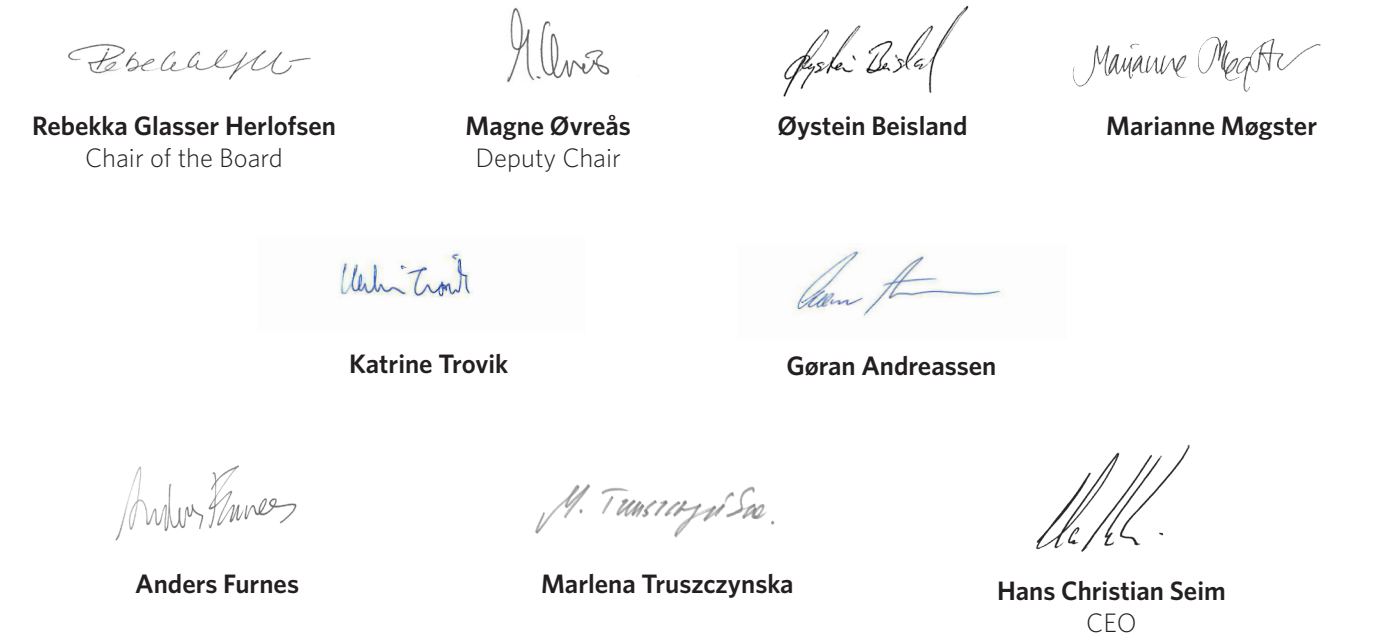 Rebekka Glasser Herlofsen
Chair of the Board
Magne Øvreås
Deputy Chair
Øystein Beisland
Marianne Møgster
Katrine Trovik
Gøran Andreassen
Anders Furnes
Marlena Truszczynska
Hans Christian Seim
CEO